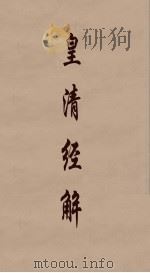 研狗
皇清经解
mtoou.info